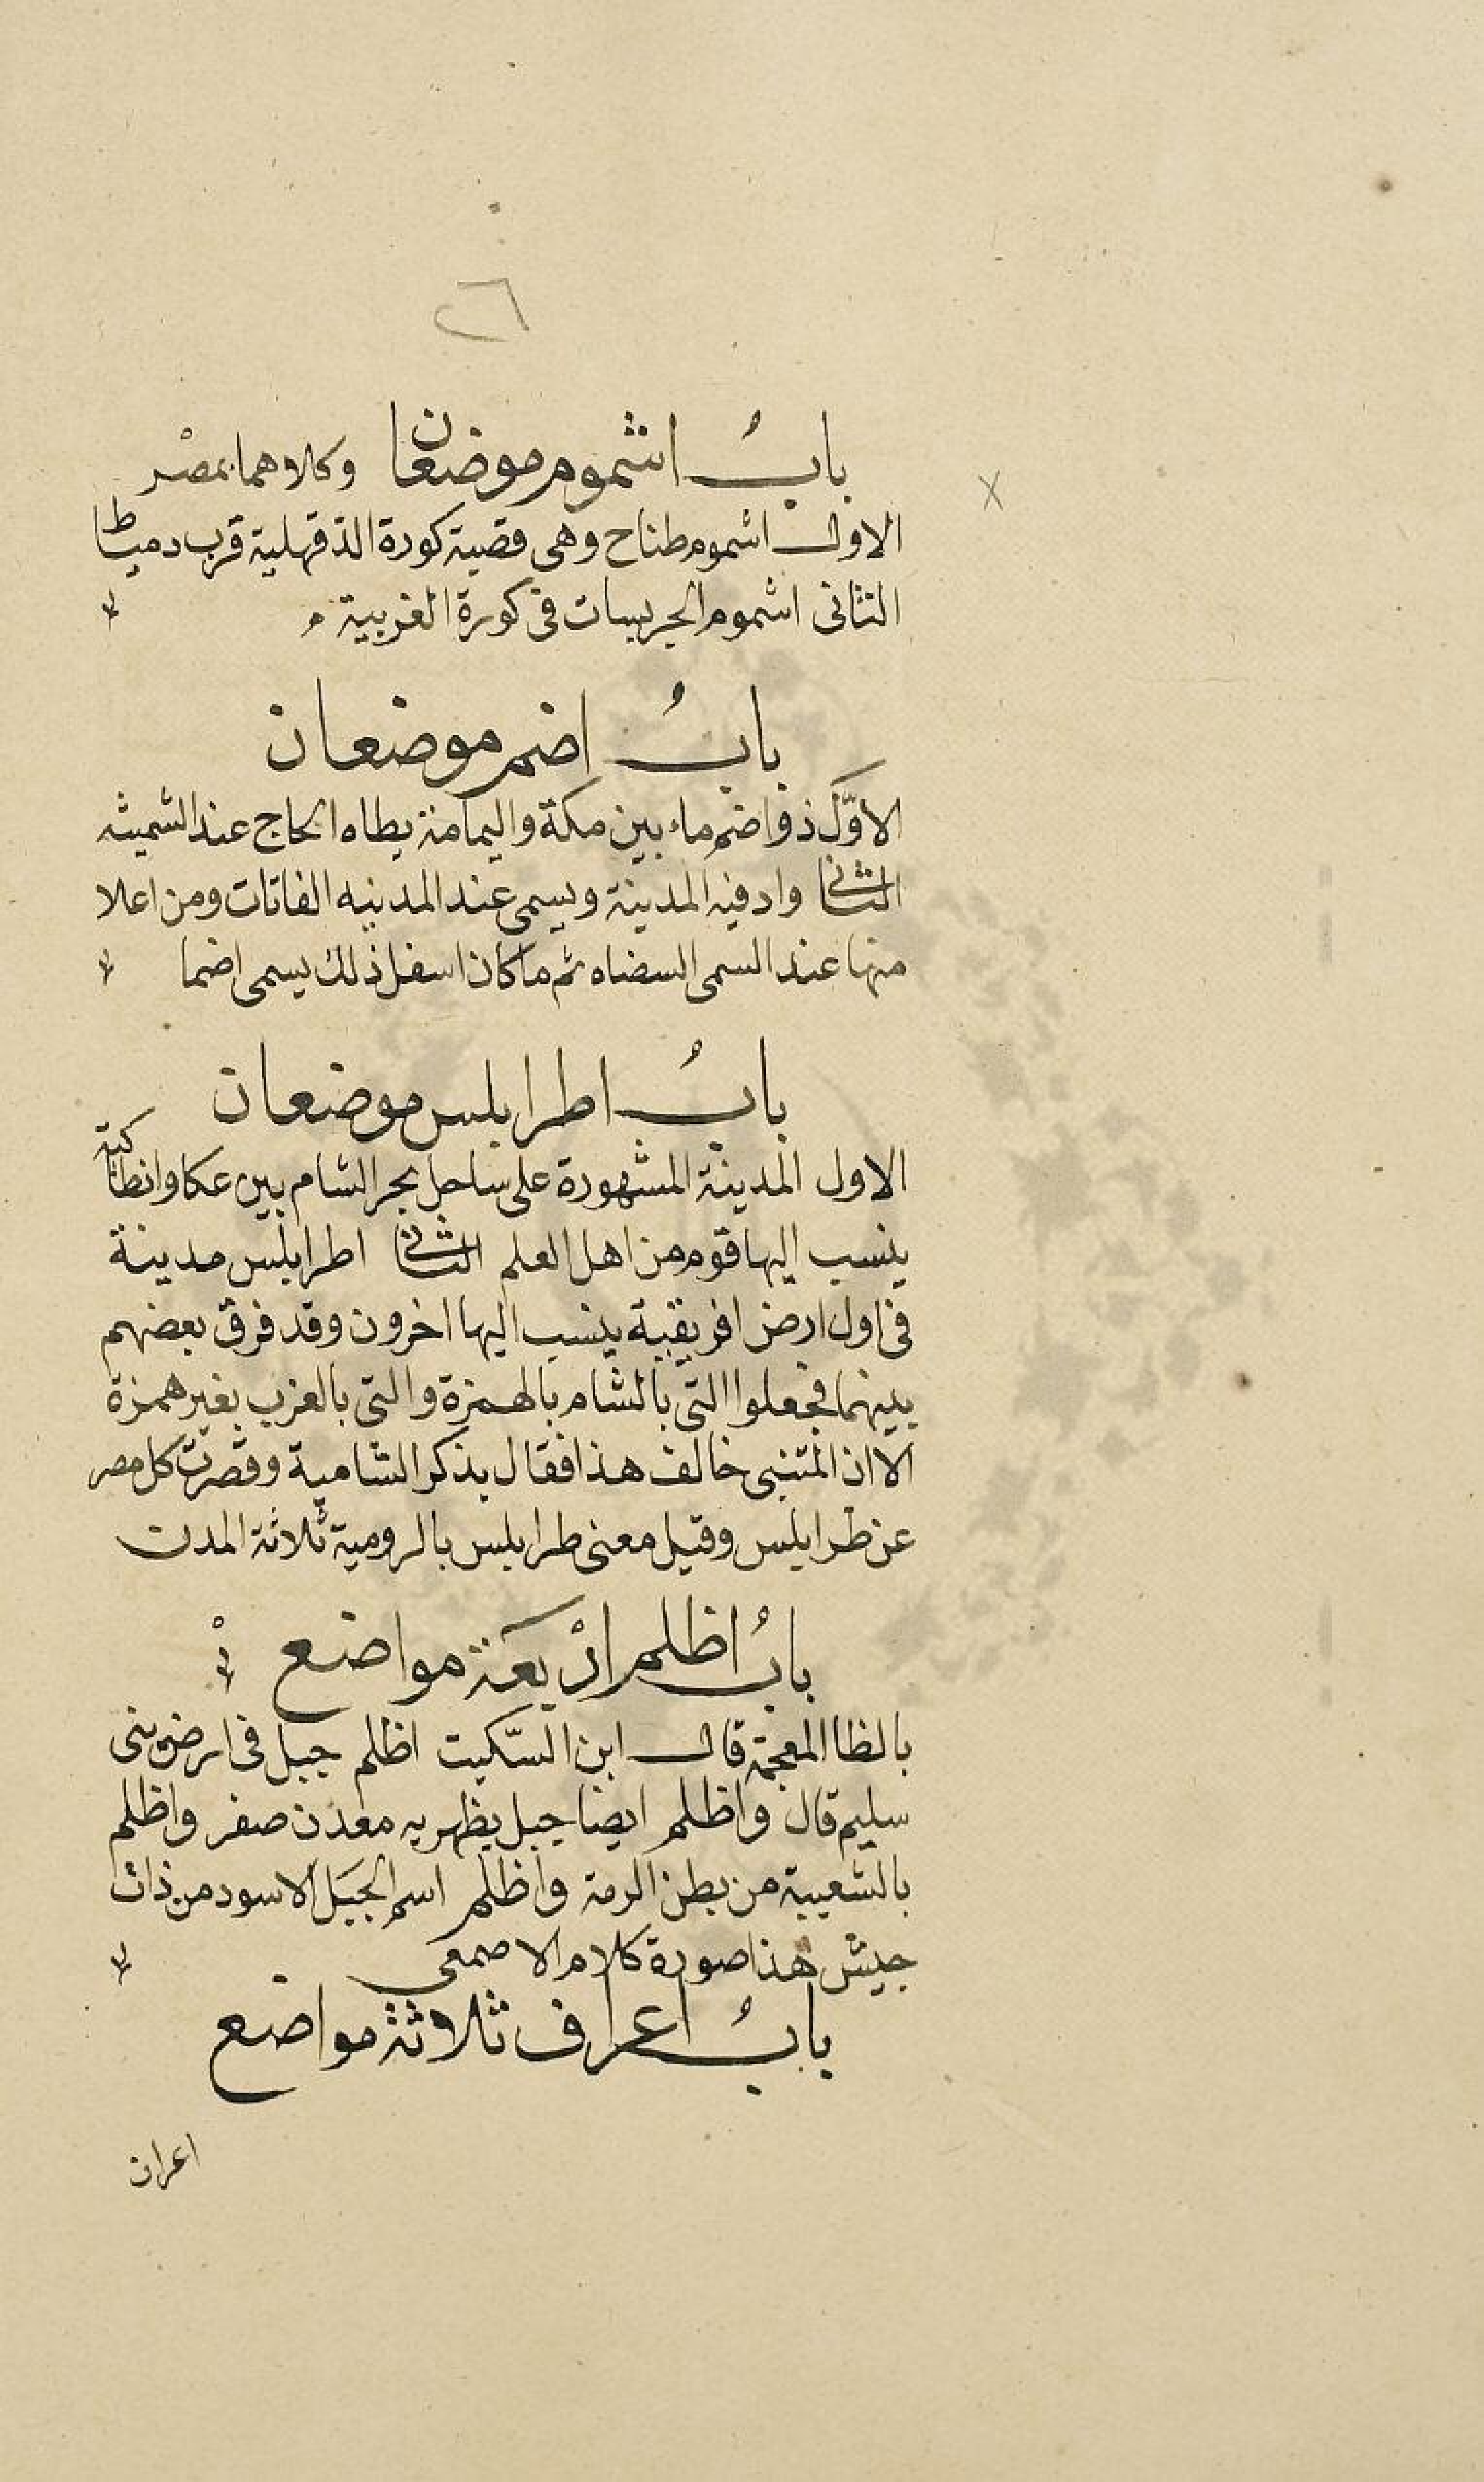 ٢٦
باب اشموم موضعان وكلاهما بمصر
الاول اشموم طناح وهى قصبة كورة الدقهلية قرب دمياط
الثانى اشموم الجريسات فى كورة الغربية
باب اضم موضعان
الاوّل ذو اضم ماء بين مكة واليمامة يطاه الحاج عند السميثه
الثانى واد فيه المدينة ويسمى عند المدينه القاتات ومن اعلا
منها عند السمى السضاه ثم ما كان اسفل ذلك يسمى اضما
باب اطرابلس موضعان
الاول المدينة المشهورة على ساحل بحر الشام بين عكا وانطاكية
ينسب اليها قوم من اهل العلم الثانى اطرابلس مدينة
فى اول ارض افريقية ينسب اليها اخرون وقد فرق بعضهم
بينهما فجعلوا التى بالشام بالهمزة والتى بالغرب بغير همزة
الا ان المتنبى خالف هذا فقال يذكر الشامية وقصرت كل مصر
عن طرابلس وقيل معنى طرابلس بالرومية ثلاثة المدن
باب اظلم اربعة مواضع
بالظا المعجمة قال ابن السكّيت اظلم جبل فى ارض بنى
سليم قال واظلم ايضا جبل يظهر به معدن صفر واظلم
بالشعيبة من بطن الرمة واظلم اسم الجبل الاسود من ذات
جيش هذا صورة كلام الاصمعى
باب اعراف ثلاثة مواضع
اعراف